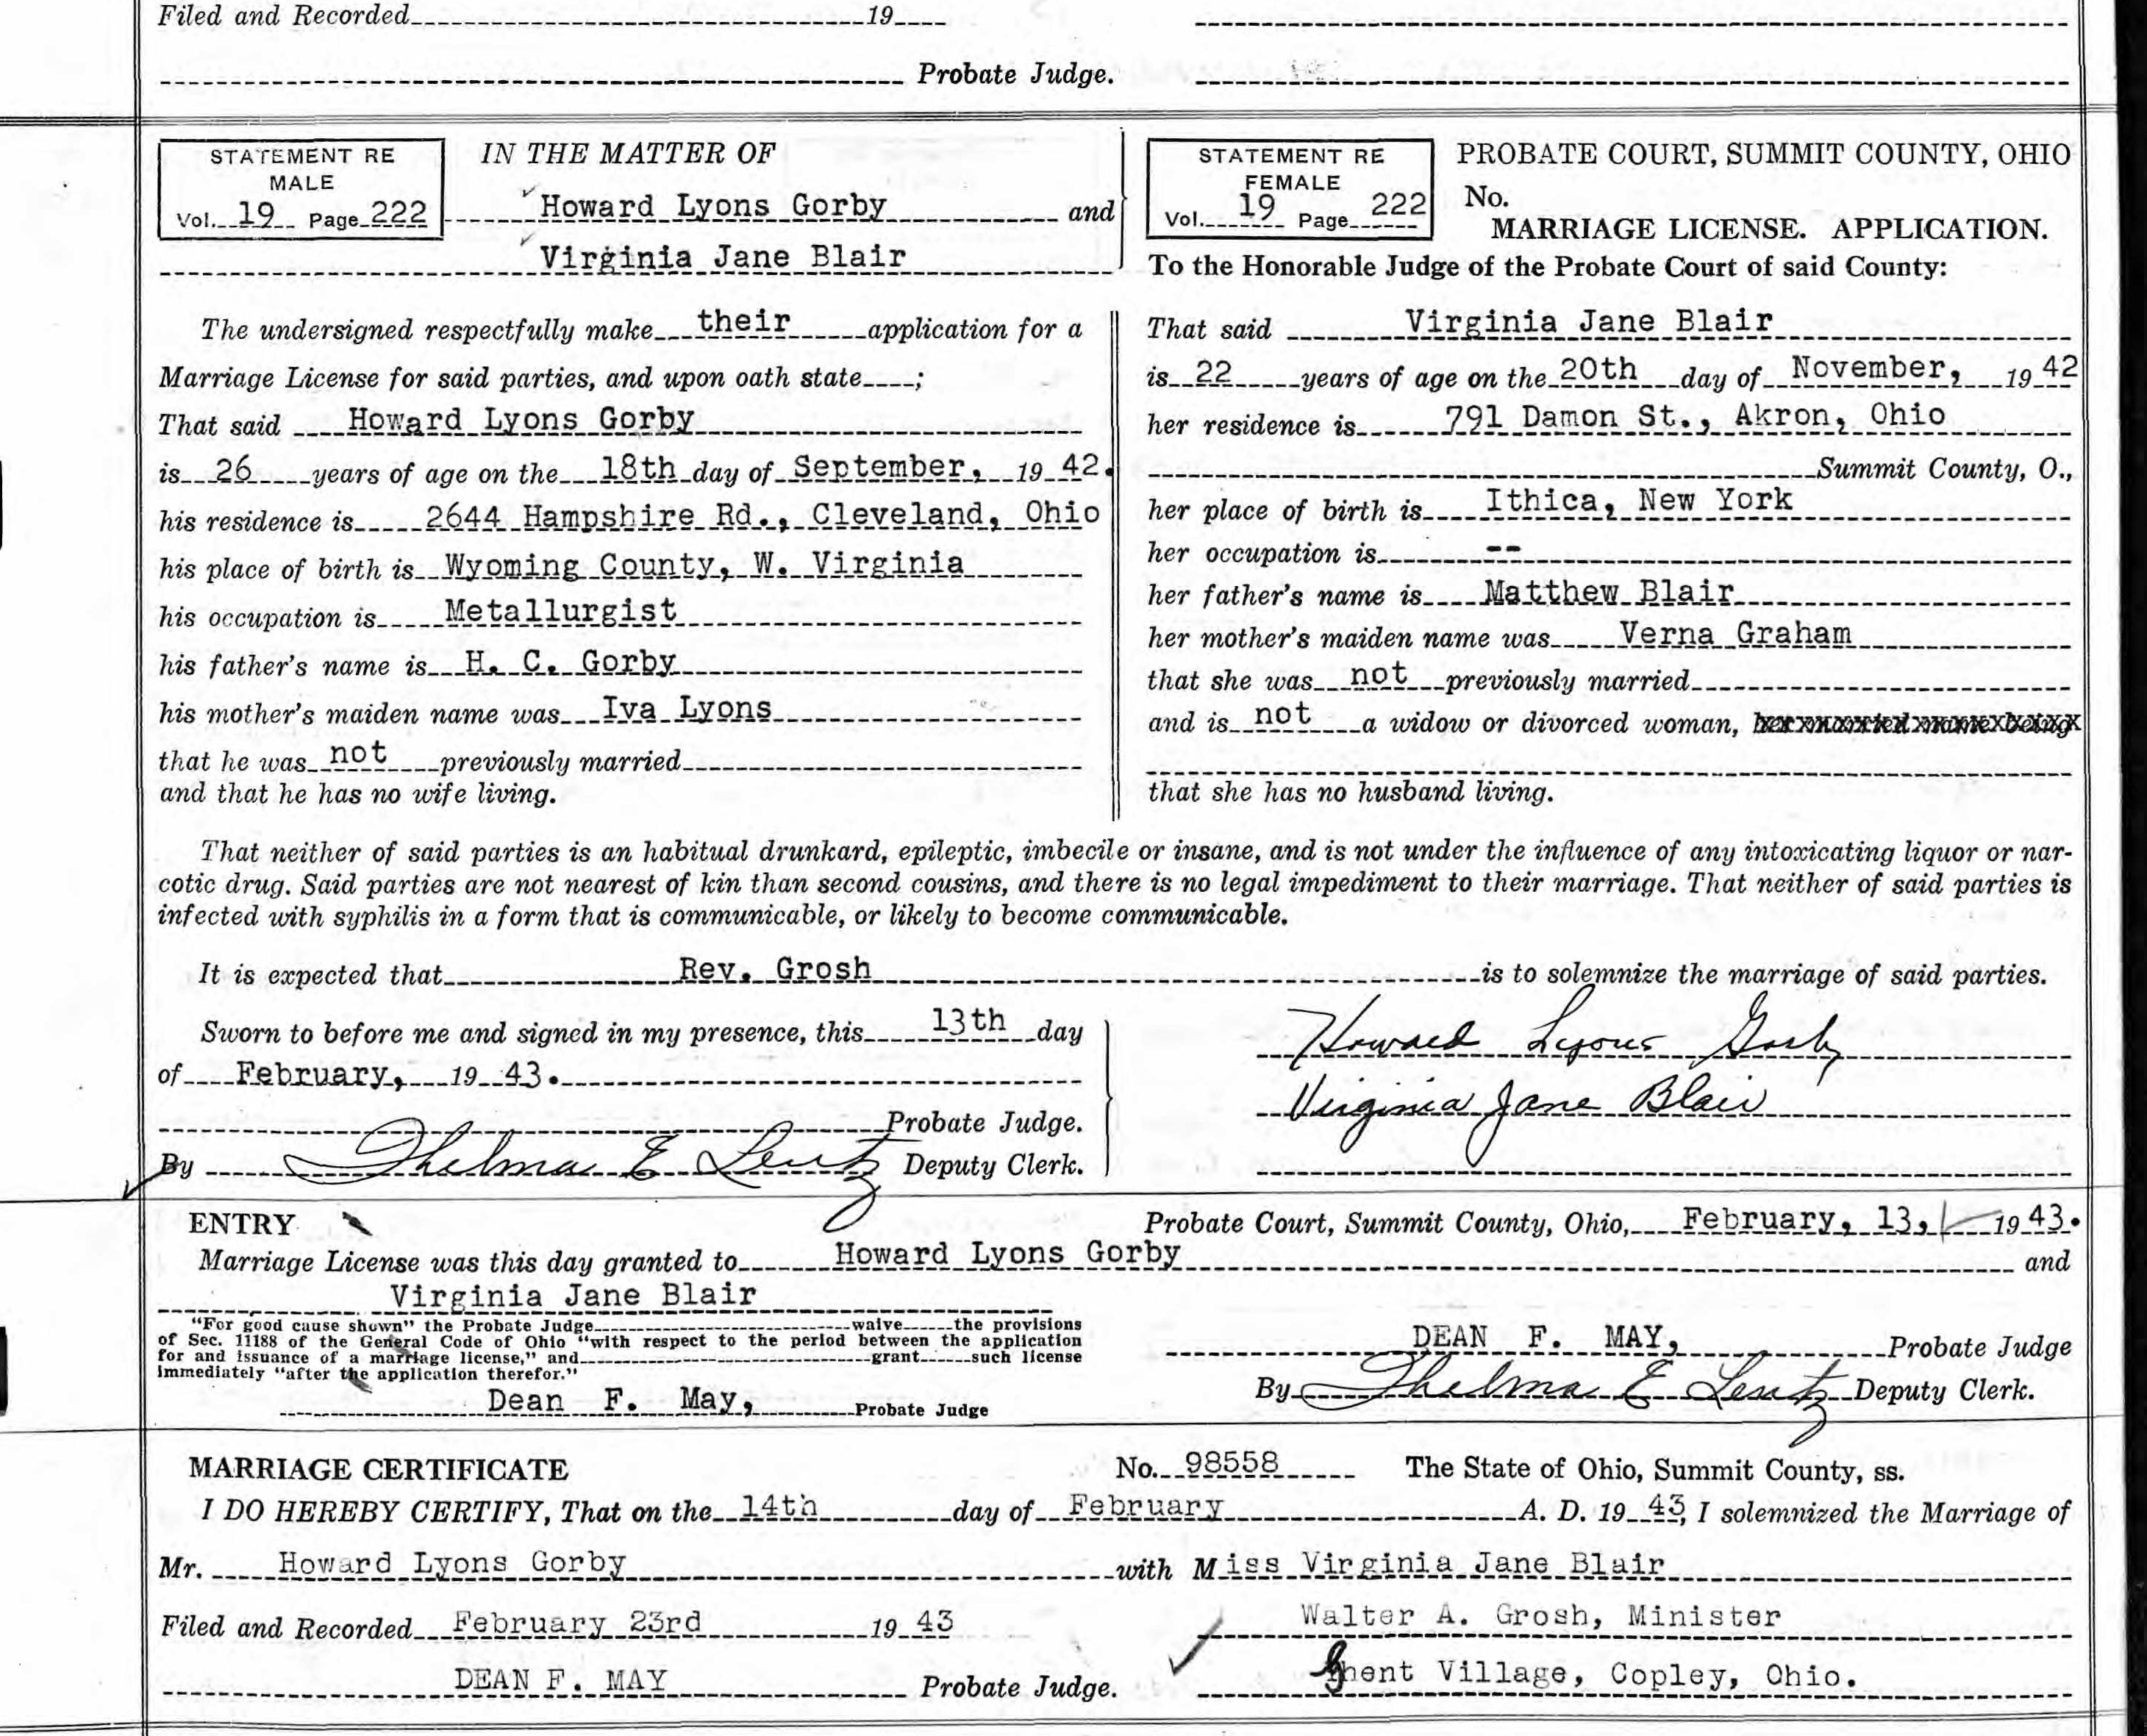 Filed and Recorded 19
Probate Judge.
STATEMENT RE
MALE
Vol. 19 Page 222
IN THE MATTER OF
Howard Lyons Gorby and
Virginia Jane Blair
STATEMENT RE
FEMALE
Vol. 19 Page 222
PROBATE COURT, SUMMIT COUNTY, OHIO
No.
MARRIAGE LICENSE. APPLICATION.
To the Honorable Judge of the Probate Court of said County:
The undersigned respectfully make their application for a
Marriage License for said parties, and upon oath state ;
That said Howard Lyons Gorby
is 26 years of age on the 18th day of September, 19 42.
his residence is 2644 Hampshire Rd., Cleveland, Ohio
his place of birth is Wyoming County, W. Virginia
his occupation is Metallurgist
his father's name is H. C. Gorby
his mother's maiden name was Iva Lyons
that he was not previously married
and that he has no wife living.
That said Virginia Jane Blair
is 22 years of age on the 20th day of November, 19 42
her residence is 791 Damon St., Akron, Ohio
Summit County, O.,
her place of birth is Ithica, New York
her occupation is --
her father's name is Matthew Blair
her mother's maiden name was Verna Graham
that she was not previously married
and is not a widow or divorced woman, her married name being
that she has no husband living.
That neither of said parties is an habitual drunkard, epileptic, imbecile or insane, and is not under the influence of any intoxicating liquor or nar-
cotic drug. Said parties are not nearest of kin than second cousins, and there is no legal impediment to their marriage. That neither of said parties is
infected with syphilis in a form that is communicable, or likely to become communicable.
It is expected that Rev. Grosh is to solemnize the marriage of said parties.
Sworn to before me and signed in my presence, this 13th day
of February, 19 43.
Probate Judge.
By Thelma E Lentz Deputy Clerk.
Howard Lyons Gorby
Virginia Jane Blair
ENTRY
Probate Court, Summit County, Ohio, February, 13, 19 43.
Marriage License was this day granted to Howard Lyons Gorby and
Virginia Jane Blair
"For good cause shown" the Probate Judge waive the provisions
of Sec. 11188 of the General Code of Ohio "with respect to the period between the application
for and issuance of a marriage license," and grant such license
immediately "after the application therefor."
Dean F. May, Probate Judge
DEAN F. MAY, Probate Judge
By Thelma E Lentz Deputy Clerk.
MARRIAGE CERTIFICATE
No. 98558 The State of Ohio, Summit County, ss.
I DO HEREBY CERTIFY, That on the 14th day of February A. D. 19 43, I solemnized the Marriage of
Mr. Howard Lyons Gorby with Miss Virginia Jane Blair
Filed and Recorded February 23rd 19 43
DEAN F. MAY Probate Judge.
Walter A. Grosh, Minister
Ghent Village, Copley, Ohio.